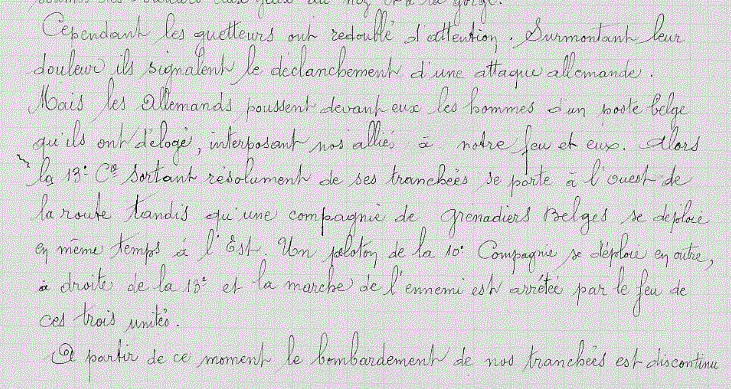 Cependant les guetteurs ont redoublé d'attention. Surmontant leur
douleur, ils signalent le déclanchement d'une attaque allemande.
Mais les Allemands poussent devant eux les hommes d'un poste belge
qu'ils ont délogé, interposant nos alliés à notre feu et eux. Alors
la 13e Cie sortant résolument de ses tranchées, se porte à l'ouest de
la route tandis qu'une compagnie de Grenadiers Belges se déploie
en même temps à l'Est. Un peloton de la 10e Compagnie se déploie en outre,
à droite de la 13e et la marche de l'ennemi est arrêtée par le feu de
ces trois unités.
A partir de ce moment le bombardement de nos tranchées est discontinu